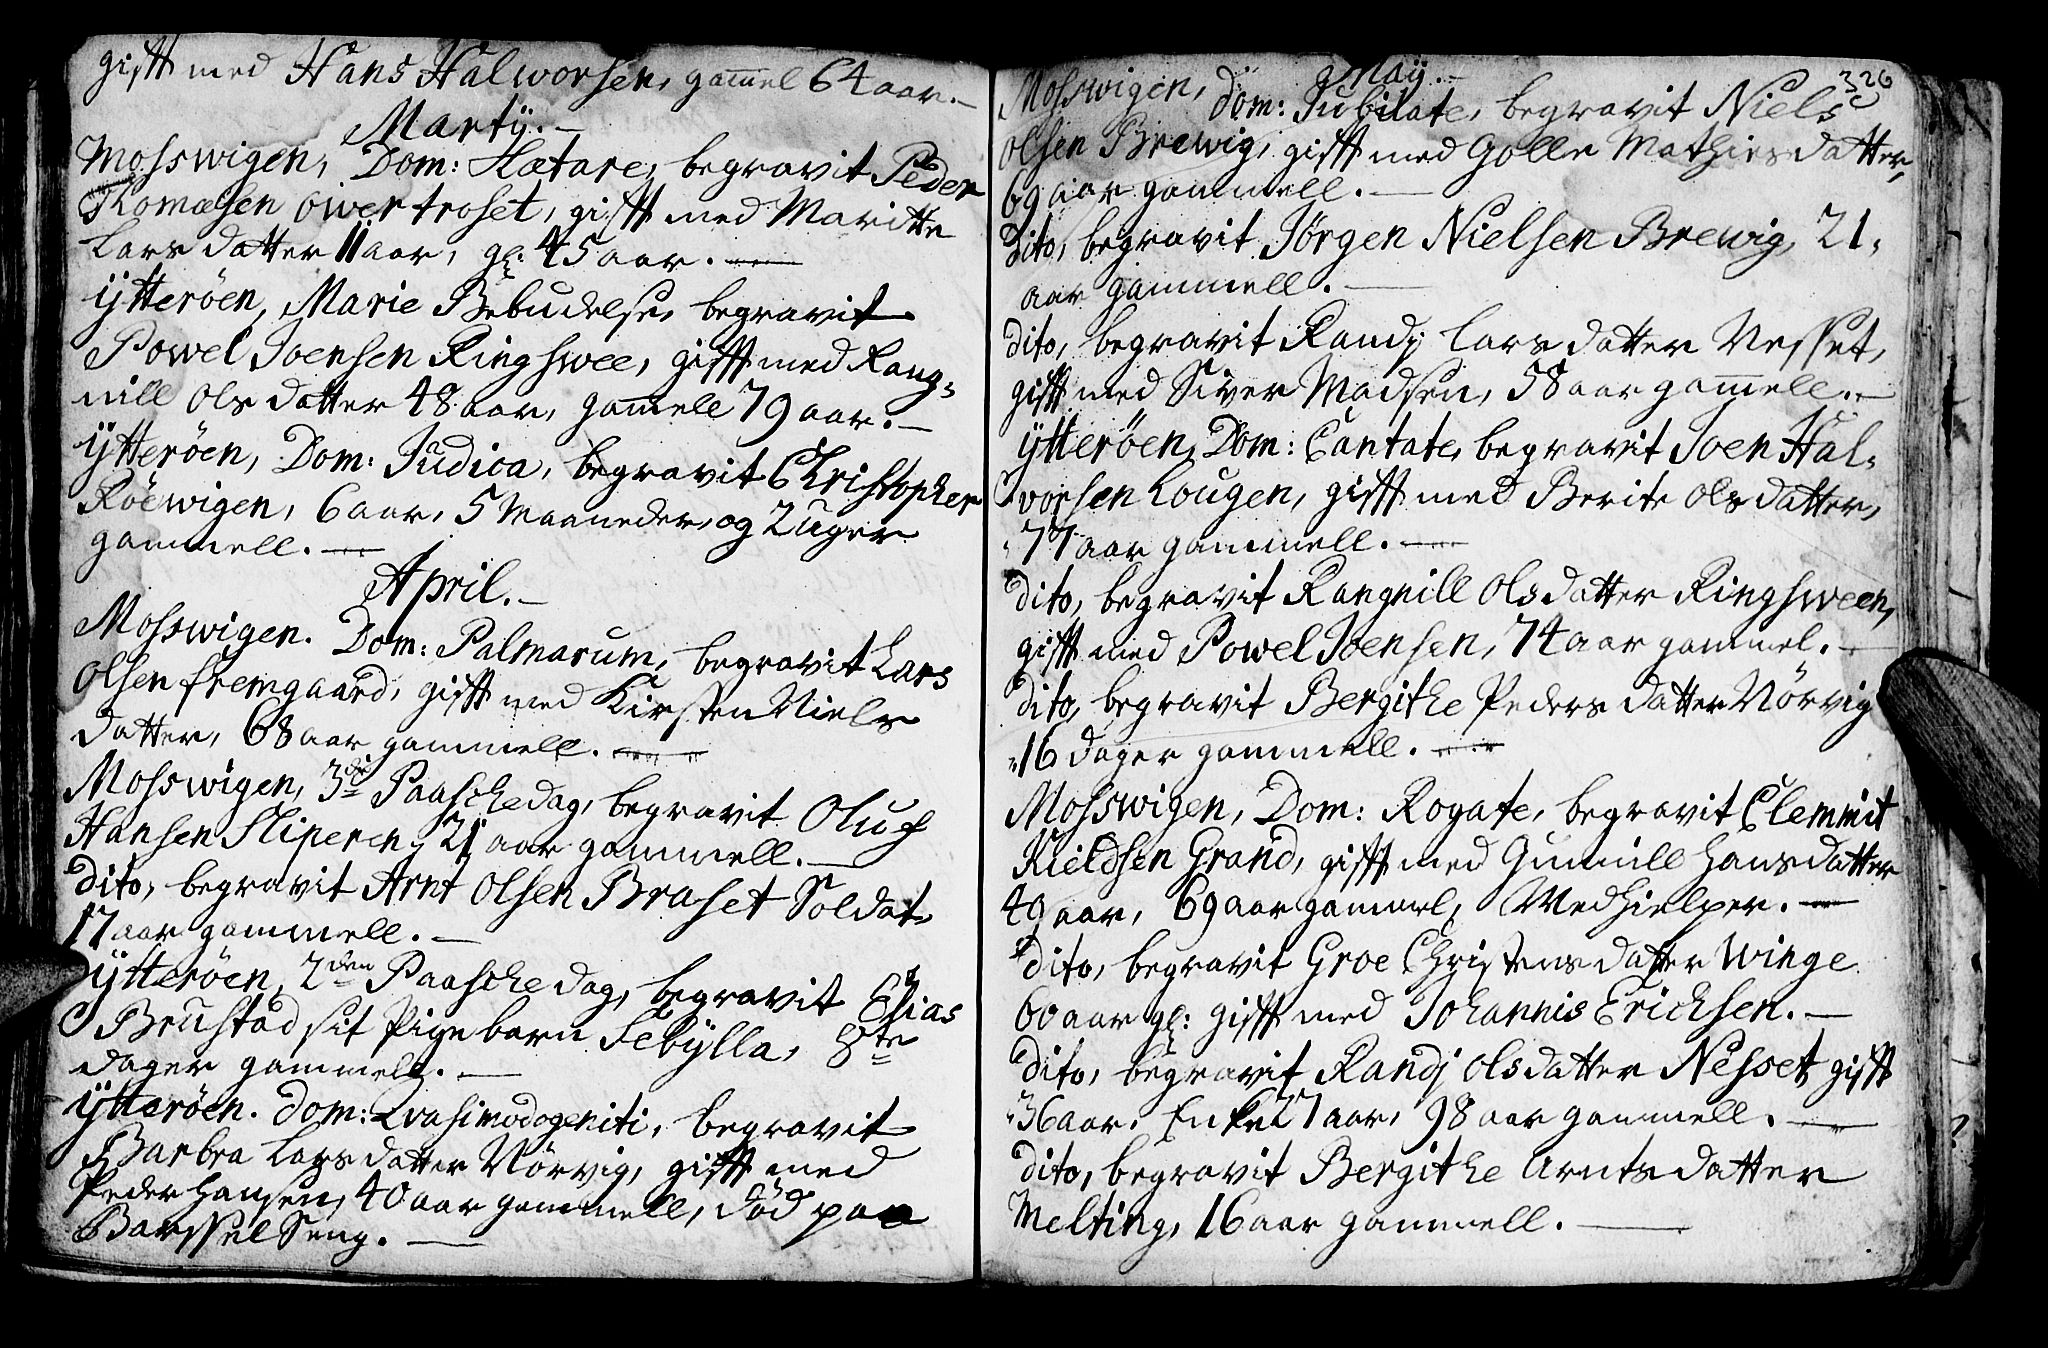 gifft med Hans Halworsen, gammel 64 aar.
Martij.
Mosswigen, Dom: Lætare, begravit Peder
Thomæsen Owertroset, gifft med Maritte
Lars datter 11 aar, gl: 45 aar.
Ytterøen, Marie Bebudelse, begravit
Powel Joensen Ringswee, gifft med Rang-
nill Ols datter 48 aar, gammell 79 aar.
Ytterøen, Dom: Judica, begravit Christopher
Røewigen, 6 aar, 5 Maaneder, og 2 uger
gammell.
April.
Mosswigen. Dom: Palmarum, begravit Lars
Olsen fremgaard, gifft med Kirsten Niels
datter, 68 aar gammell.
Mosswigen, 3die Paaschedag, begravit Oluf
Hansen Sliperen, 21 aar gammell.
dito, begravit Arnt Olsen Braset Soldat
17 aar gammell.
Ytterøen, 2den Paasche dag, begravit Elias
Brustad sit Pigebarn Sebylla, 8te
dager gammell.
Ytterøen. Dom: Qvasimodogeniti, begravit
Barbra Lars datter Nørvig, gifft med
Peder Hansen, 40 aar gammell, død paa
Barssel Seng.
326
Maij.
Mosswigen, Dom: Jubilate, begravit Niels
Olsen Brewig, gifft med Golle Mathies datter,
69 aar gammell.
Dito, begravit Jørgen Nielsen Brewig, 21
aar gammell.
dito, begravit Randj Lars datter Nesset,
gifft med Siver Madsen, 58 aar gammell.
Ytterøen, Dom: Cantate, begravit Joen Hal-
vorsen Lougen, gifft med Berite Ols datter,
77 aar gammell.
dito, begravit Rangnill Ols datter Ringsween,
gifft med Powel Joensen, 74 aar gammel.
dito, begravit Bergithe Peders datter Nørvig
16 dager gammell.
Mosswigen, Dom: Rogate, begravit Clemmit
Kieldsen Grand, gifft med Gunnill Hans datter
49 aar, 69 aar gammel, Medhielper.
dito, begravit Groe Christens datter Winge
60 aar gl: gifft med Johannis Ericksen.
dito, begravit Randj Ols datter Nesset gifft
36 aar, Enke 27 aar, 98 aar gammell.
dito, begravit Bergithe Arnts datter
Melting, 16 aar gammell.